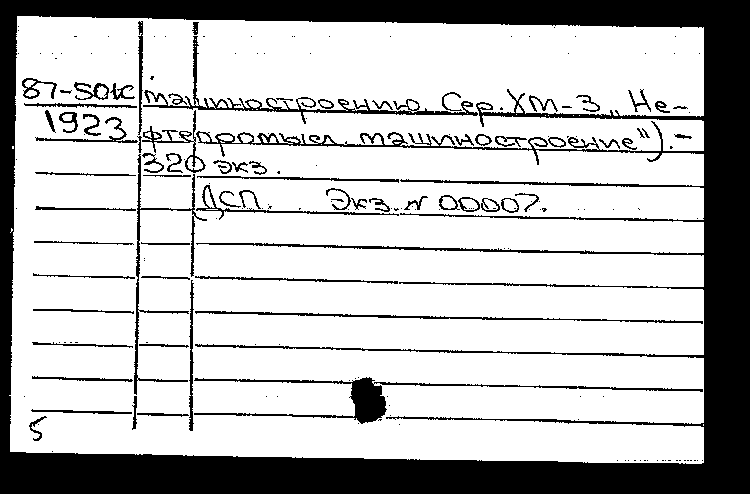 87-50K машиностроению. Сер. ХМ-3 „Не-
1923 фтепромысл. машиностроение"). -
320 экз.
ДСП. Экз. N 00007.
5